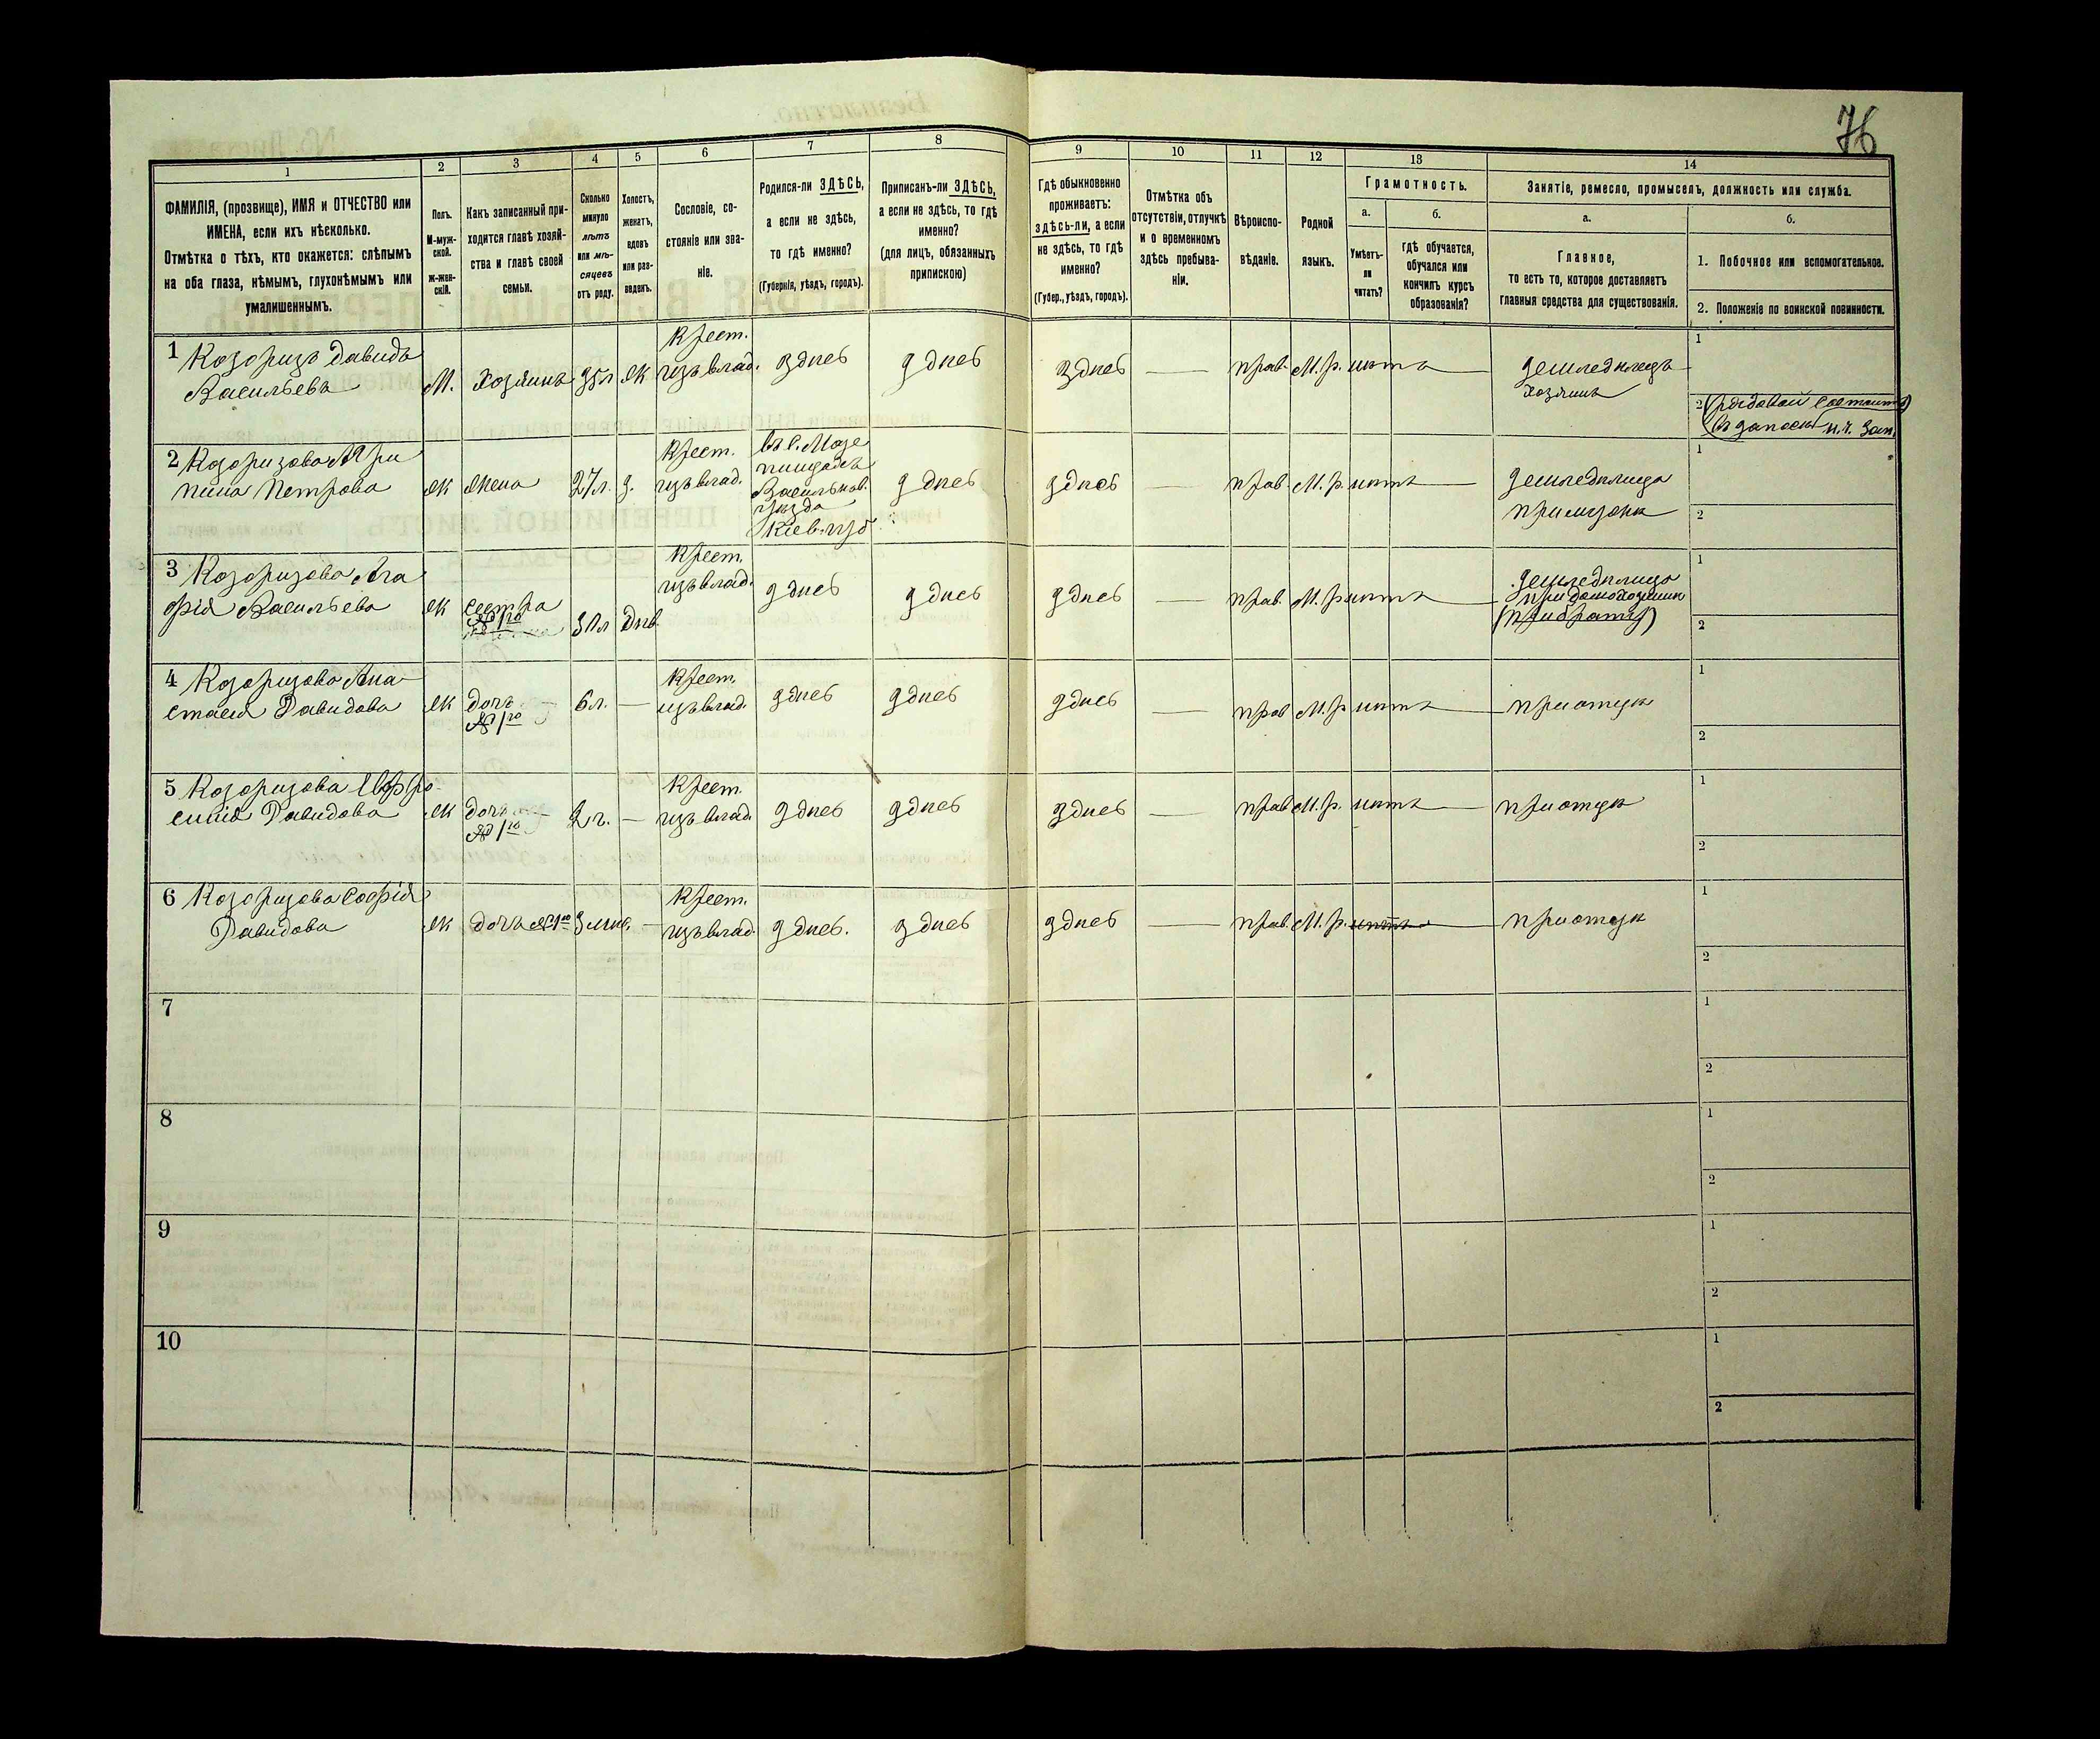 76
1
2
3
4
5
6
7
8
9
10
11
12
13
14
ФАМИЛІЯ, (прозвище), ИМЯ и ОТЧЕСТВО или
ИМЕНА, если ихъ нѣсколько.
Отмѣтка о тѣхъ, кто окажется: слѣпымъ
на оба глаза, нѣмымъ, глухонѣмымъ или
умалишеннымъ.
Полъ.
М-муж-
ской.
Ж-жен-
скій.
Какъ записанный при-
ходится главѣ хозяй-
ства и главѣ своей
семьи.
Сколько
минуло
лѣтъ
или мѣ-
сяцевъ
отъ роду.
Холостъ,
женатъ,
вдовъ
или раз-
веденъ.
Сословіе, со-
стояніе или зва-
ніе.
Родился-ли ЗДѢСЬ,
а если не здѣсь,
то гдѣ именно?
(Губернія, уѣздъ, городъ).
Приписанъ-ли ЗДѢСЬ,
а если не здѣсь, то гдѣ
именно?
(для лицъ, обязанныхъ
припискою)
Гдѣ обыкновенно
проживаетъ:
здѣсь-ли, а если
не здѣсь, то гдѣ
именно?
(Губер., уѣздъ, городъ).
Отмѣтка объ
отсутствіи, отлучкѣ
и о временномъ
здѣсь пребыва-
ніи.
Вѣроиспо-
вѣданіе.
Родной
языкъ.
Грамотность.
а.
б.
Умѣетъ-
ли
читать?
гдѣ обучается,
обучался или
кончилъ курсъ
образованія?
Занятіе, ремесло, промыселъ, должность или служба.
а.
б.
Главное,
то есть то, которое доставляетъ
главныя средства для существованія.
1. Побочное или вспомогательное.
2. Положеніе по воинской повинности.
1 Козоризъ Давидъ
Васильевъ
М. Хозяинъ 35 л Ж
Крест.
изъ влад.
здѣсь здѣсь здѣсь — прав. М. р. нѣтъ —
земледѣлецъ
хозяинъ
1
2 рядовой состоитъ
въ запасѣ
2 Козоризова Агри
пина Петрова
Ж жена 27 л. з.
Крест.
изъ влад.
въ с.
Васильков.
уѣзда
Кіев. губ
здѣсь здѣсь — прав. М. р. нѣтъ
земледѣлица
при мужѣ
1
2
3 Козоризова Ага
фія Васильева
Ж сестра
№ 1го
30 л Дѣв.
Крест.
изъ влад.
здѣсь здѣсь здѣсь — прав. М. р. нѣтъ —
земледѣлица
при домохозяинѣ
(при братѣ)
1
2
4 Козоризова Ана
стасія Давидова
Ж дочь
№ 1го
6 л. —
Крест.
изъ влад.
здѣсь здѣсь здѣсь — прав М. р нѣтъ — при отцѣ
1
2
5 Козоризова Евфро-
синія Давидова
Ж дочь
№ 1го
2 г. —
Крест.
изъ влад.
здѣсь здѣсь здѣсь — прав М. р. нѣтъ — при отцѣ
1
2
6 Козоризова Софія
Давидова
Ж дочь № 1го 3 мѣс. —
Крест.
изъ влад.
здѣсь. здѣсь здѣсь — прав. М. р. нѣтъ — при отцѣ
1
2
7
1
2
8
1
2
9
1
2
10
1
2